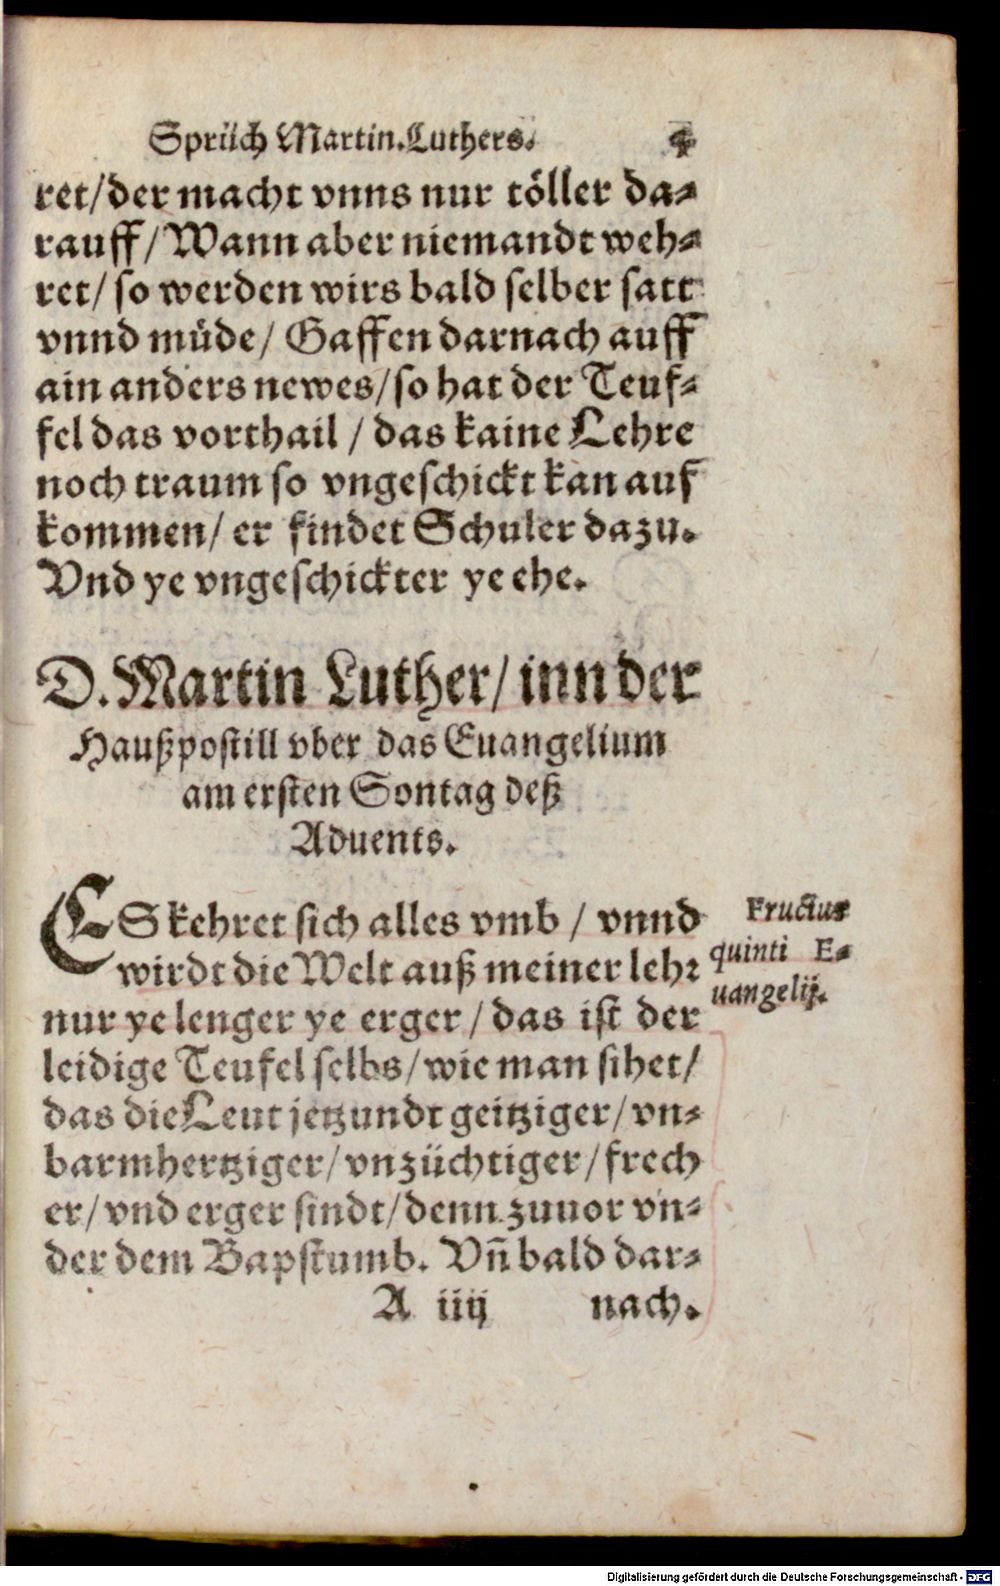 Sprüch Martin. Luthers. 4
ret/ der macht vnns nur töller da⸗
rauff/ Wann aber niemandt weh⸗
ret/ so werden wirs bald selber satt
vnnd müde/ Gaffen darnach auff
ain anders newes/ so hat der Teuf⸗
fel das vorthail/ das kaine Lehre
noch traum so vngeschickt kan auf
kommen/ er findet Schuler dazu.
Vnd ye vngeschickter ye ehe.
D. Martin Luther/ inn der
Haußpostill vber das Euangelium
am ersten Sontag deß
Aduents.
ES kehret sich alles vmb/ vnnd
wirdt die Welt auß meiner lehr
nur ye lenger ye erger/ das ist der
leidige Teufel selbs/ wie man sihet/
das die Leut jetzundt geitziger/ vn⸗
barmhertziger/ vnzüchtiger/ frech
er/ vnd erger sindt/ denn zuuor vn⸗
der dem Bapstumb. Vn̄ bald dar⸗
A iiij nach.
Fructus
quinti E⸗
uangelij.
Digitalisierung gefördert durch die Deutsche Forschungsgemeinschaft - DFG